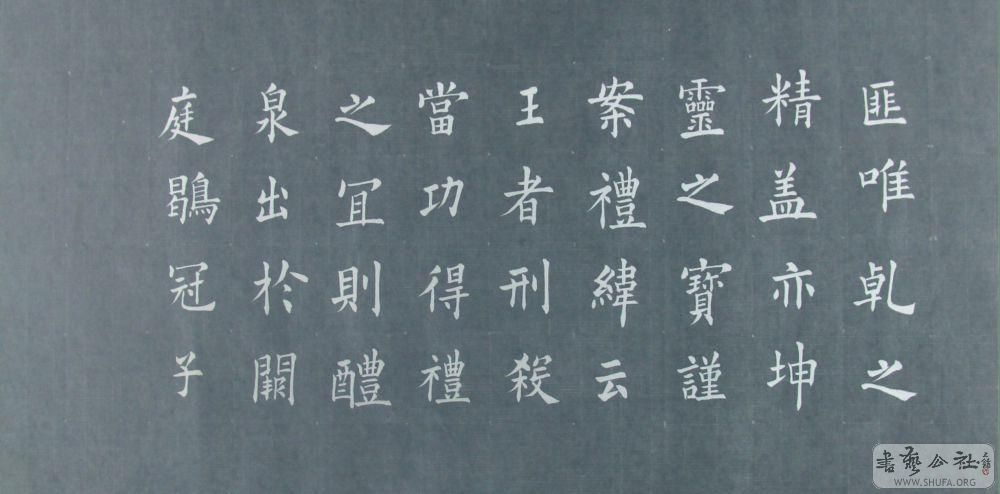 匪唯乹之
精盖亦坤
靈之寶謹
案禮緯云
王者刑殺
當功得禮
之冝則醴
泉出於闕
庭鶡冠子
書藝公社
WWW.SHUFA.ORG